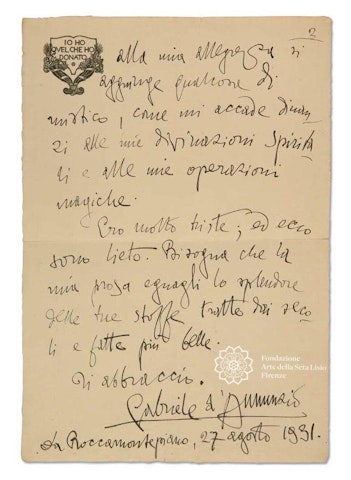 IO HO
QVEL CHE HO
DONATO
2
alla mia allegrezza si
aggiunge qualcosa di
mistico, come mi accade dinan-
zi alle mie divinazioni spirita-
li e alle mie operazioni
magiche.
Ero molto triste; ed ecco
sono lieto. Bisogna che la
mia prosa eguagli lo splendore
delle tue stoffe tratte dai seco-
li e fatte più belle.
Ti abbraccio.
Gabriele d'Annunzio
La Roccamontepiano, 27 agosto 1931.
Fondazione
Arte della Seta Lisio
Firenze